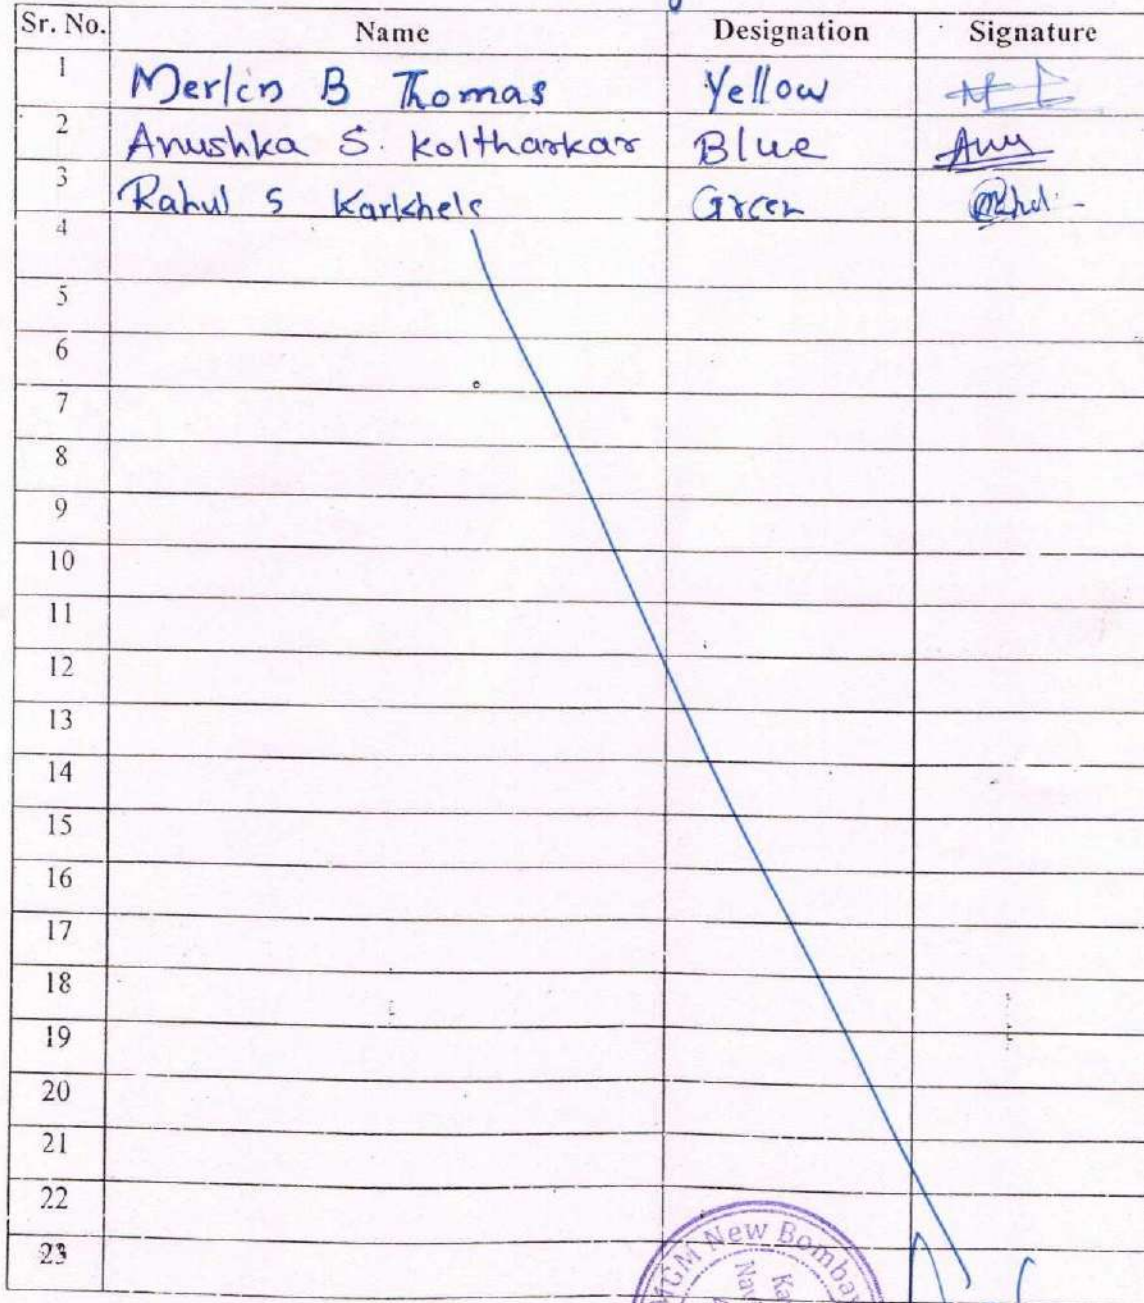 Sr. No. Name Designation Signature
1 Merlin B Thomas Yellow
2 Anushka S. Koltharkar Blue Anu
3 Rahul S Karkhele Green
4
5
6
7
8
9
10
11
12
13
14
15
16
17
18
19
20
21
22
23
MGM New Bombay